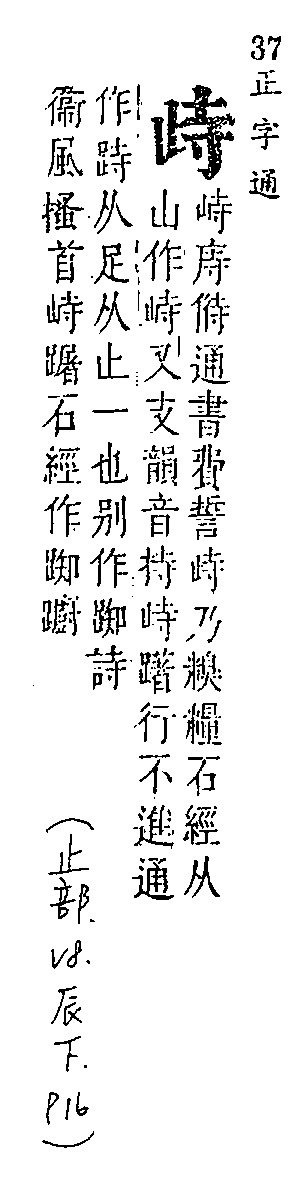 37正字通
歭
歭庤偫通書費誓歭乃糗糧石經从
山作峙又支韻音持歭躇行不進通
作跱从足从止一也別作踟詩
衞風搔首歭躇石經作踟躕
(止部. v8. 辰下. P16)